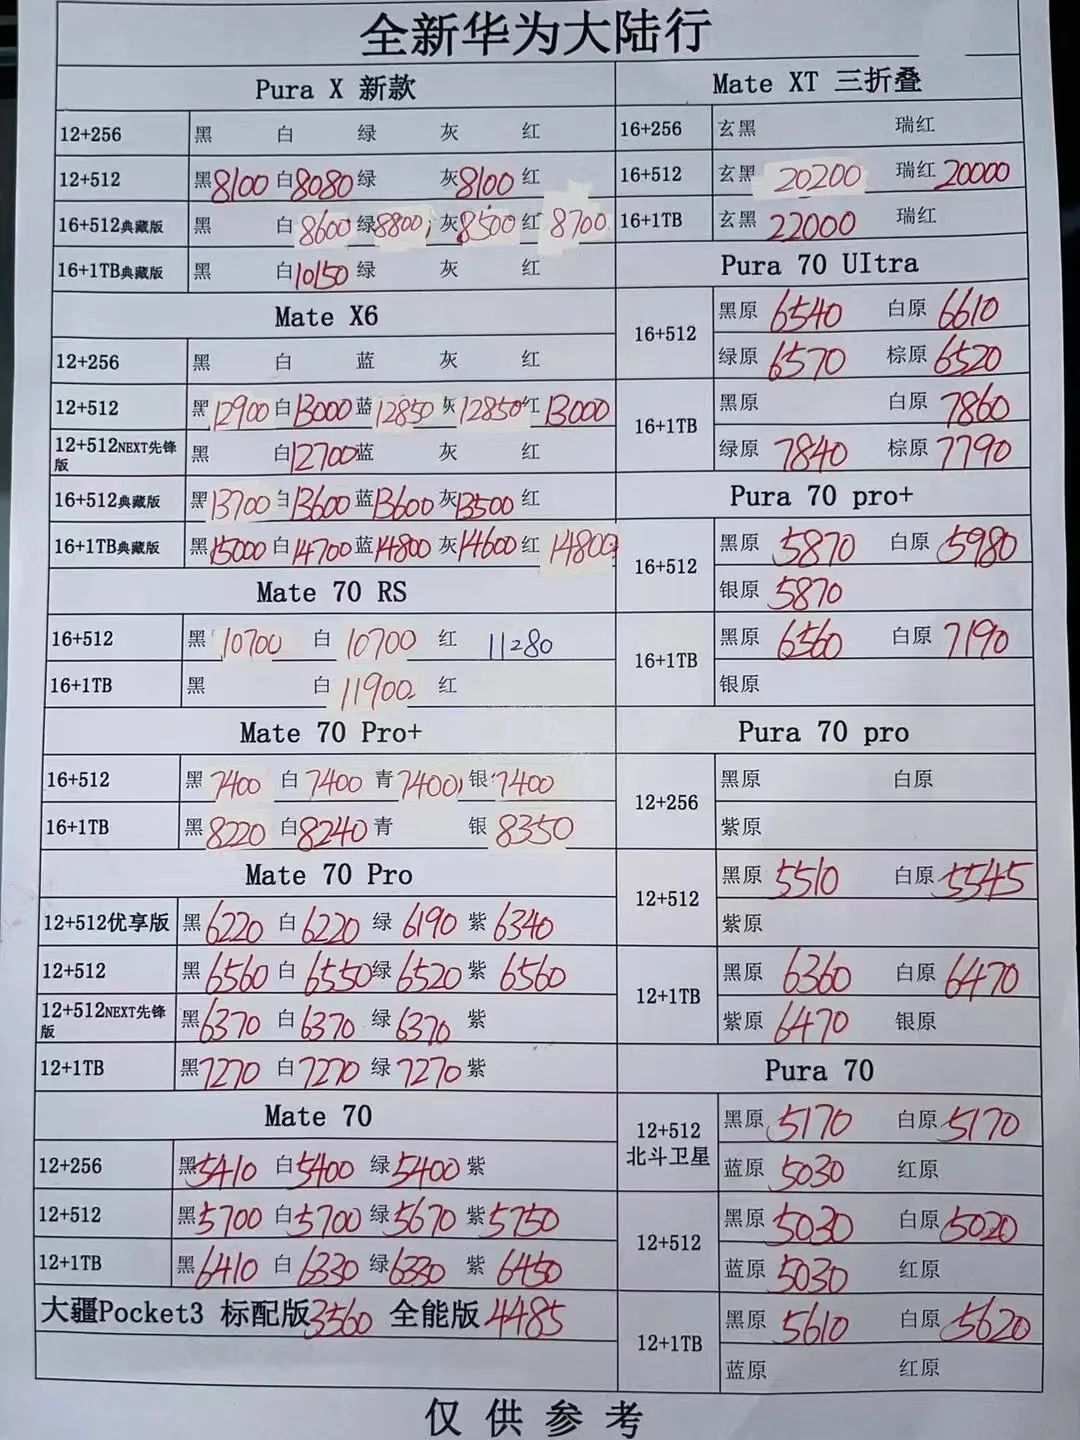 全新华为大陆行
Pura X 新款
12+256 黑 白 绿 灰 红
12+512 黑8100 白8080 绿 灰8100 红
16+512典藏版 黑 白8600 绿8800 灰8500 红8700
16+1TB典藏版 黑 白10150 绿 灰 红
Mate X6
12+256 黑 白 蓝 灰 红
12+512 黑12900 白13000 蓝12850 灰12850 红13000
12+512NEXT先锋版 黑 白12700 蓝 灰 红
16+512典藏版 黑13700 白13600 蓝13600 灰13500 红
16+1TB典藏版 黑15000 白14700 蓝14800 灰14600 红14800
Mate 70 RS
16+512 黑10700 白10700 红11280
16+1TB 黑 白11900 红
Mate 70 Pro+
16+512 黑7400 白7400 青7400 银7400
16+1TB 黑8220 白8240 青 银8350
Mate 70 Pro
12+512优享版 黑6220 白6220 绿6190 紫6340
12+512 黑6560 白6550 绿6520 紫6560
12+512NEXT先锋版 黑6370 白6370 绿6370 紫
12+1TB 黑7270 白7270 绿7270 紫
Mate 70
12+256 黑5410 白5400 绿5400 紫
12+512 黑5700 白5700 绿5670 紫5750
12+1TB 黑6410 白6330 绿6330 紫6450
大疆Pocket3 标配版3560 全能版4485
Mate XT 三折叠
16+256 玄黑 瑞红
16+512 玄黑20200 瑞红20000
16+1TB 玄黑22000 瑞红
Pura 70 UItra
16+512 黑原6540 白原6610
绿原6570 棕原6520
16+1TB 黑原 白原7860
绿原7840 棕原7790
Pura 70 pro+
16+512 黑原5870 白原5980
银原5870
16+1TB 黑原6560 白原7190
银原
Pura 70 pro
12+256 黑原 白原
紫原
12+512 黑原5510 白原5545
紫原
12+1TB 黑原6360 白原6470
紫原6470 银原
Pura 70
12+512北斗卫星 黑原5170 白原5170
蓝原5030 红原
12+512 黑原5030 白原5020
蓝原5030 红原
12+1TB 黑原5610 白原5620
蓝原 红原
仅供参考